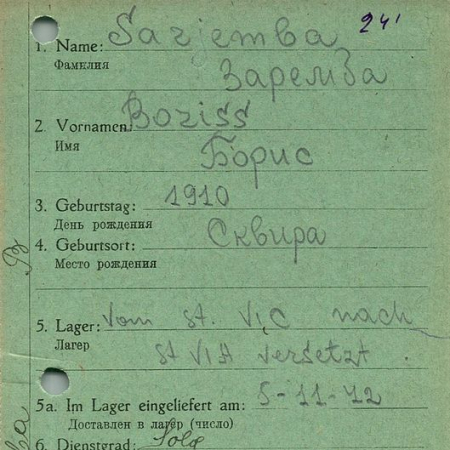 24'
1. Name: Sarjemba
Фамилия Заремба
2. Vornamen: Boriss
Имя Борис
3. Geburtstag: 1910
День рождения
4. Geburtsort: Сквира
Место рождения
5. Lager: vom St. VI,C nach
Лагерь St VI A versetzt.
5a. Im Lager eingeliefert am: 5-11-42
Доставлен в лагерь (число)
6. Dienstgrad: Sold